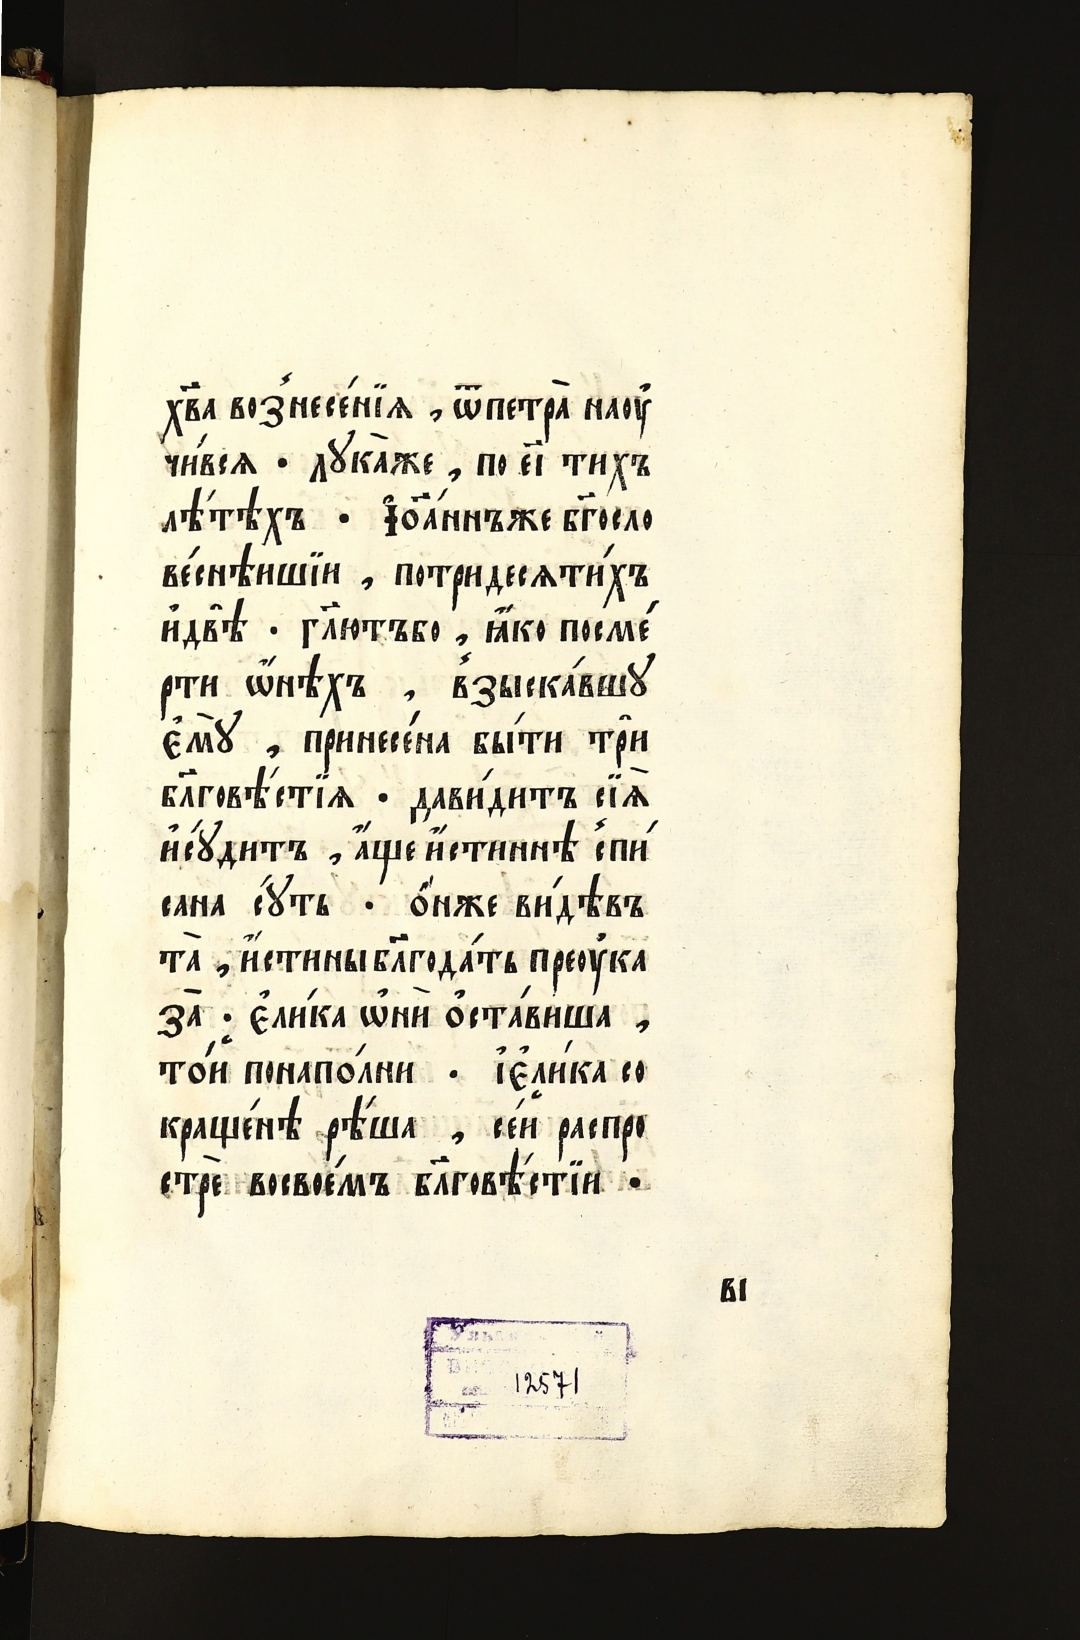 хв҃а воз̾несе́нїѧ , ѿпетра̀ наоу҆
чи́всѧ · лꙋка̀же , по е҃і тихъ
лѣ́тѣхъ · І҆ѡ҃а́ннъже бг҃осло
ве́снѣишїи , потридесѧти́хъ
и҆дв̑ѣ · гл҃ютъбо , ꙗ҆́ко посме́
рти ѡ҆́нѣхъ , в̾зыска́вшꙋ
є҆мꙋ̀ , принесе́на бы́ти трѝ
бл҃говѣ́стїѧ · дави́дитъ сїѧ̀
и҆сꙋ́дитъ , а҆́ще и҆́стиннѣ с̾пи́
сана сꙋ́ть · ѻ҆́нже ви́дѣвъ
та̀ , и҆́стины бл҃года́ть преоу҆ка
за̀ · є҆ли́ка ѡ҆нѝ ѻ҆ста́виша ,
то́й понапо́лни · і҆є҆ли́ка со
краще́нѣ рѣ́ша , се́й распро
стрѐ восвое́мъ бл҃говѣ́стїи ·
ві
12571